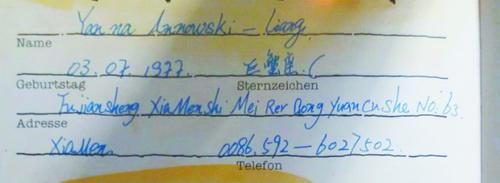 Yanna Annowski - Liang
Name
03.07.1977. 巨蟹座.(
Geburtstag Sternzeichen
Fujiansheng XiaMenshi Mei Ren Gong Yuan Cu she No: 63
Adresse
XiaMen 0086.592-6027502.
Telefon